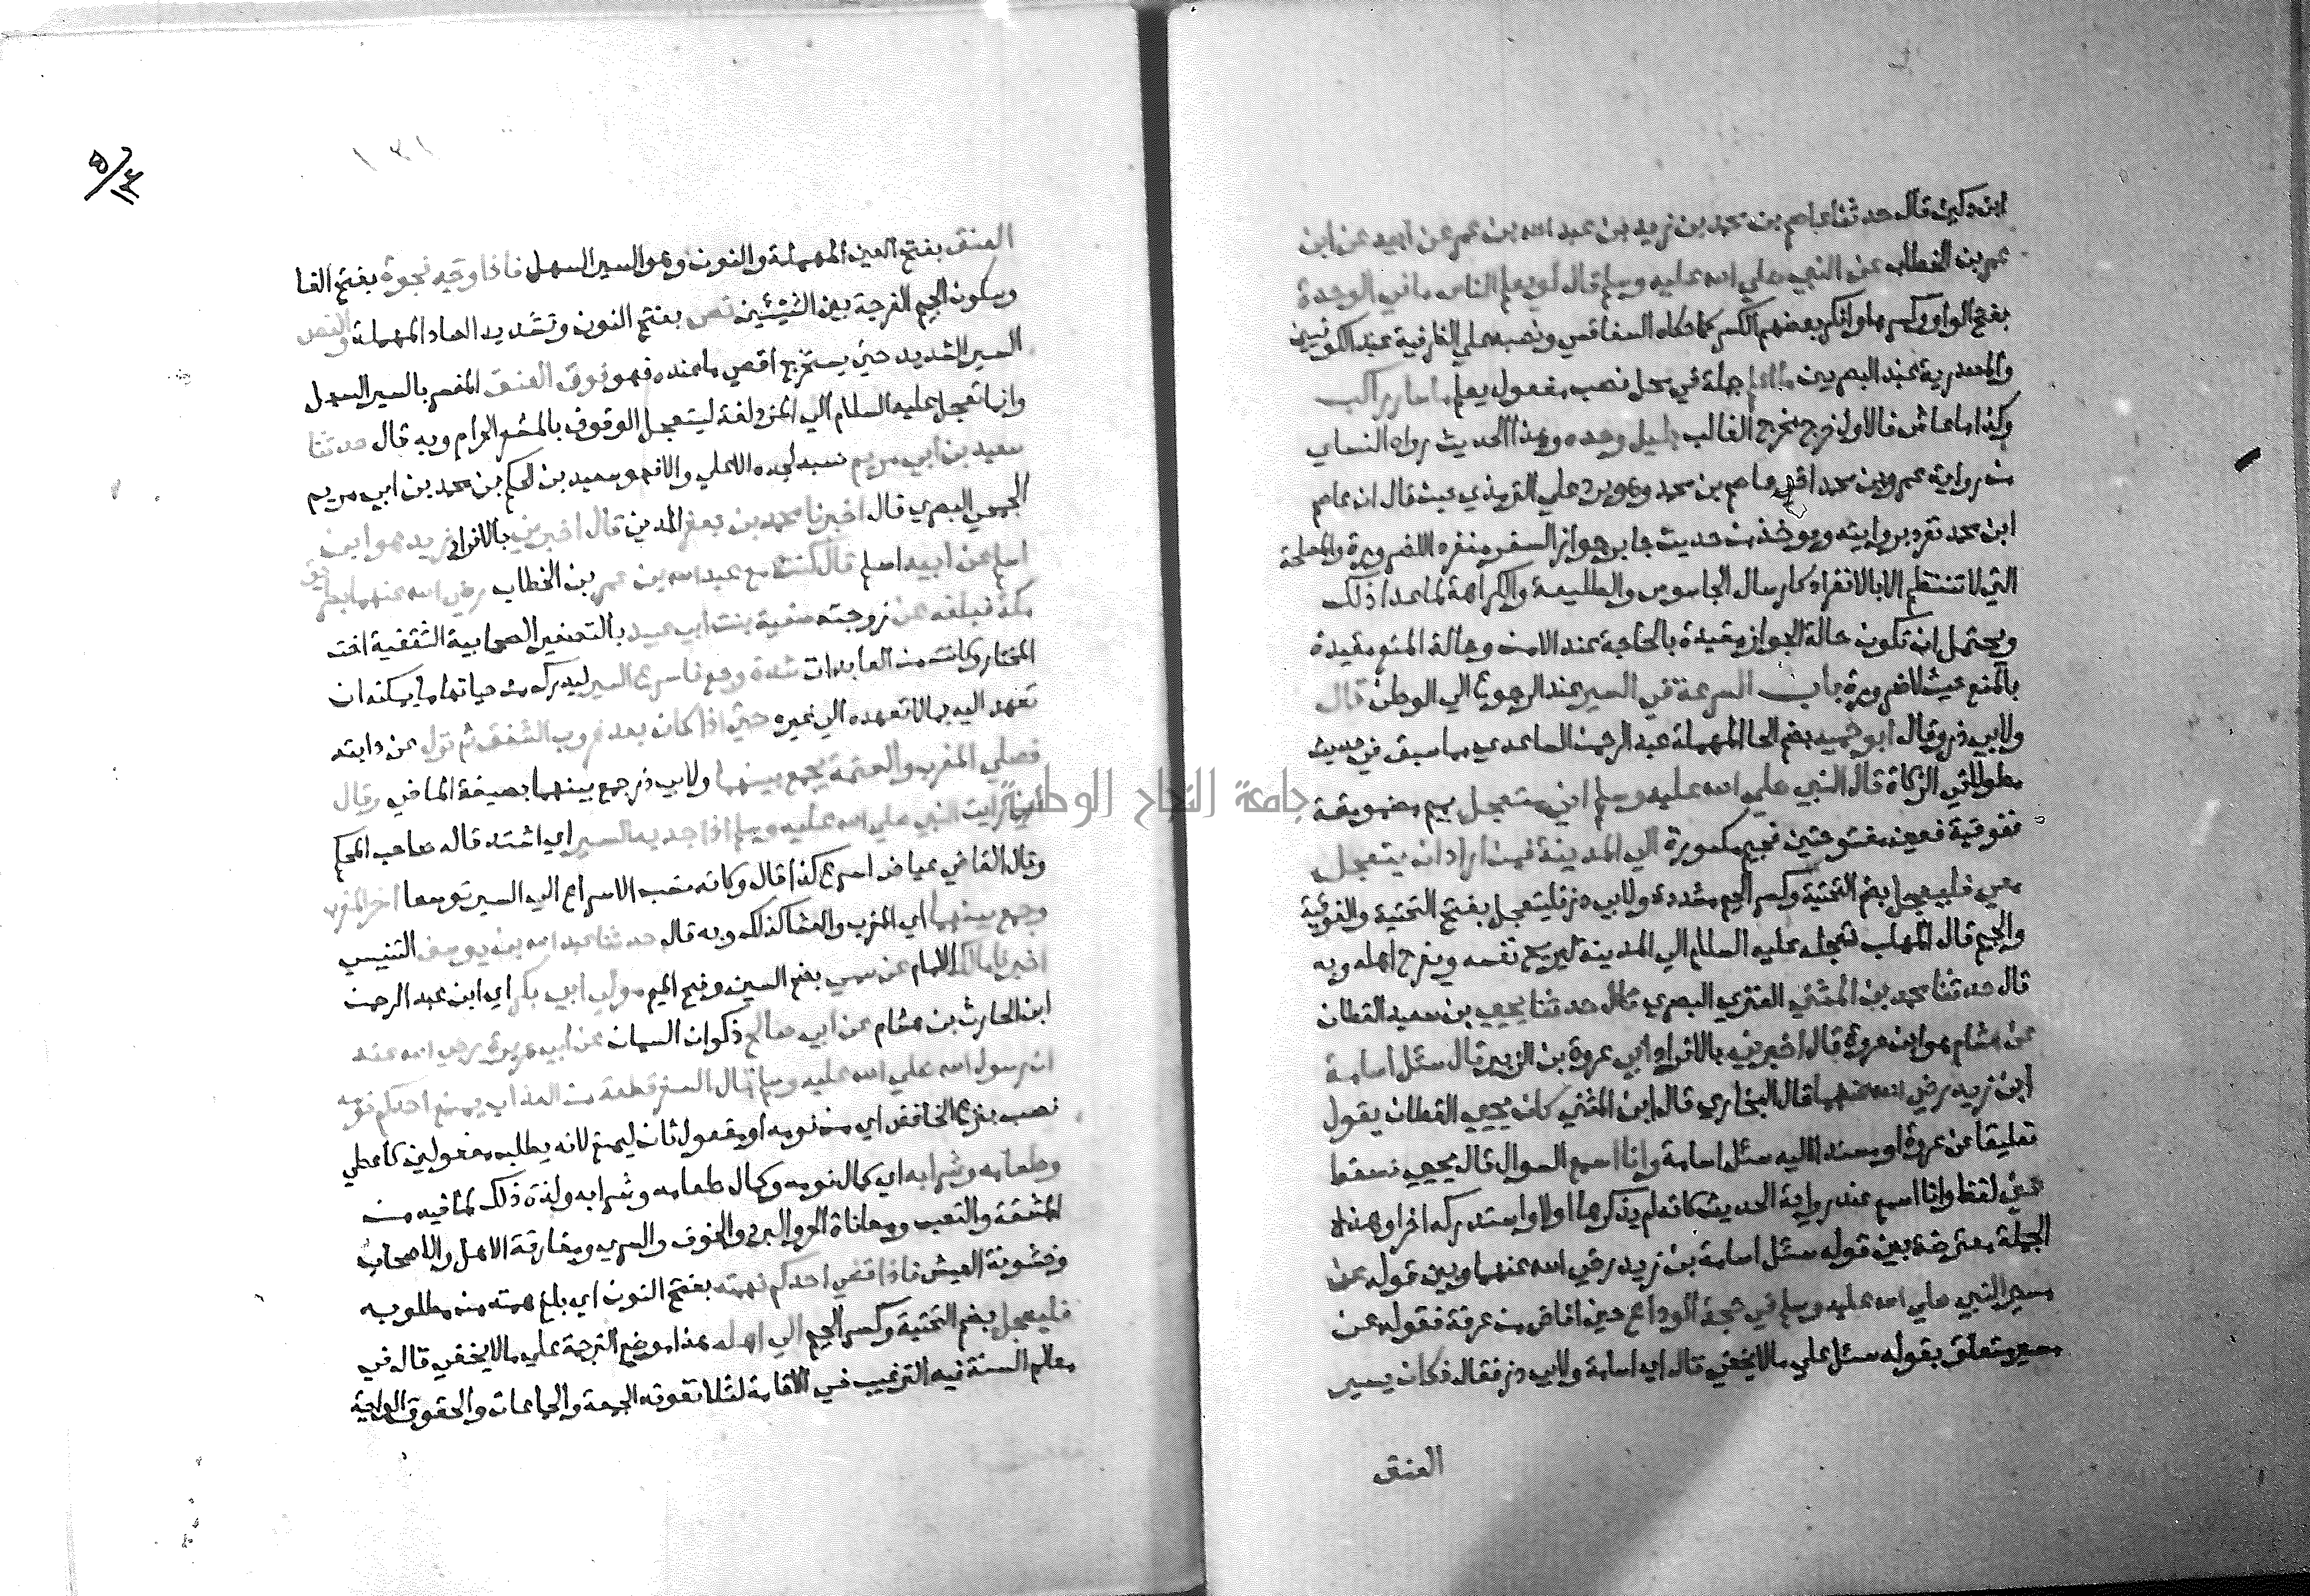 ابن دكين قال حدثنا عاصم بن محمد بن زيد بن عبد الله بن عمر عن ابيه عن ابن
عمر بن الخطاب عن النبي صلي الله عليه وسلم قال لو يعلم الناس ما في الوحدة
بفتح الواو وكسرها وانكر بعضهم الكسر كما حكاه السفاقسي ونصبه علي الظرفية عند الكوفيين
والمصدرية عند البصريين ما اعلم جملة في محل نصب مفعول يعلم ما سار راكب
وكذا ماش فالاول خرج مخرج الغالب بليل وحده وهذا الحديث رواه النسائي
من رواية عمر بن محمد اخي عاصم بن محمد وهو يرد علي الترمذي حيث قال ان عاصم
ابن محمد تفرد بروايته ويوخذ من حديث جابر جواز السفر منفردا للضرورة والمصلحة
التي لا تنتظم الا بالانفراد كارسال الجاسوس والطليعة والكراهة لما عدا ذلك
ويحتمل ان تكون حالة الجواز مقيدة بالحاجة عند الامن وحالة المنع مقيدة
بالمنع حيث لا ضرورة باب السرعة في السير عند الرجوع الي الوطن قال
ولابي ذر وقال ابو حميد بضم الحا المهملة عبد الرحمن الساعدي مما سبق في حديث
مطولا في الزكاة قال النبي صلي الله عليه وسلم اني متعجل بميم مضمومة
ففوقية فعين مفتوحتين فجيم مكسورة الي المدينة فمن اراد ان يتعجل
معي فليعجل بضم التحتية وكسر الجيم مشددة ولابي ذر فليتعجل بفتح التحتية والفوقية
والجيم قال المهلب تعجله عليه السلام الي المدينة ليريح نفسه ويفرح اهله وبه
قال حدثنا محمد بن المثني العنزي البصري قال حدثنا يحيي بن سعيد القطان
عن هشام هو ابن عروة قال اخبرني بالافراد ابي عروة بن الزبير قال سئل اسامة
ابن زيد رضي الله عنهما قال البخاري قال ابن المثني كان يحيي القطان يقول
تعليقا عن عروة او مسندا اليه سئل اسامة وانا اسمع السوال قال يحيي فسقط
عني لفظ وانا اسمع عند رواية الحديث كانه لم يذكرها اولا واستدركه اخرا وهذه
الجملة معترضة بين قوله سئل اسامة بن زيد رضي الله عنهما وبين قوله عن
مسير النبي صلي الله عليه وسلم في حجة الوداع حين افاض من عرفة فقوله عن
مسير متعلق بقوله سئل علي ما لا يخفي قال اي اسامة ولابي ذر فقال فكان يسير
العنق
١٣١
٥/١٣
العنق بفتح العين المهملة والنون وهو السير السهل فاذا وجد فجوة بفتح الفا
وسكون الجيم الفرجة بين الشيئين نص بفتح النون وتشديد الصاد المهملة والنص
السير الشديد حتي يستخرج اقصي ما عنده فهو فوق العنق المفسر بالسير السهل
وانما تعجل عليه السلام الي المزدلفة ليتعجل الوقوف بالمشعر الحرام وبه قال حدثنا
سعيد بن ابي مريم نسبه لجده الاعلي والا فهو سعيد بن الحكم بن محمد بن ابي مريم
الجمحي البصري قال اخبرنا محمد بن جعفر المدني قال اخبرني بالافراد زيد هو ابن
اسلم عن ابيه اسلم قال كنت مع عبد الله بن عمر بن الخطاب رضي الله عنهما بطريق
مكة فبلغه عن زوجته صفية بنت ابي عبيد بالتصغير الصحابية الثقفية اخت
المختار وكانت من العابدات شدة وجع فاسرع السير ليدرك من حياتها ما يمكنه ان
تعهد اليه بما لا تعهده الي غيره حتي اذا كان بعد غروب الشفق ثم نزل عن دابته
فصلي المغرب والعتمة يجمع بينهما ولابي ذر جمع بينهما بصيغة الماضي وقال
اني رايت النبي صلي الله عليه وسلم اذا جد به السير اي اشتد قاله صاحب المحكم
وقال القاضي عياض اسرع كذا قال وكانه نسب الاسراع الي السير توسعا اخر المغرب
وجمع بينهما اي المغرب والعشا كذلك وبه قال حدثنا عبد الله بن يوسف التنيسي
اخبرنا مالك الامام عن سمي بضم السين وفتح الميم مولي ابي بكر اي ابن عبد الرحمن
ابن الحارث بن هشام عن ابي صالح ذكوان السمان عن ابي هريرة رضي الله عنه
ان رسول الله صلي الله عليه وسلم قال السفر قطعة من العذاب يمنع احدكم نومه
نصب بنزع الخافض اي من نومه او مفعول ثان ليمنع لانه يطلب مفعولين كاعطي
وطعامه وشرابه اي كمال نومه وكمال طعامه وشرابه ولذة ذلك لما فيه من
المشقة والتعب ومعاناة الحر والبرد والخوف والسري ومفارقة الاهل والاصحاب
وخشونة العيش فاذا قضي احدكم نهمته بفتح النون اي بلغ همته من مطلوبه
فليعجل بضم التحتية وكسر الجيم الي اهله هذا موضع الترجمة علي ما لا يخفي قال في
معالم السنة فيه الترغيب في الاقامة لئلا تفوته الجمعة والجماعات والحقوق الواجبة
جامعة النجاح الوطنية